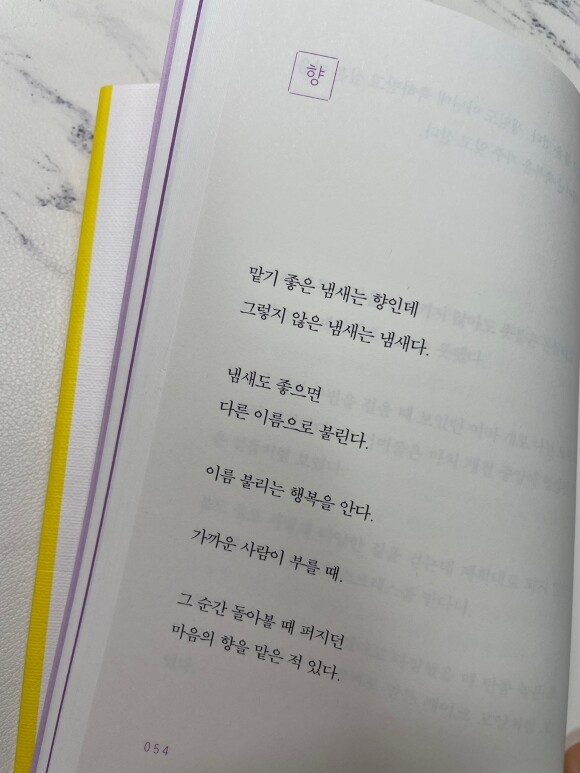 향
맡기 좋은 냄새는 향인데
그렇지 않은 냄새는 냄새다.
냄새도 좋으면
다른 이름으로 불린다.
이름 불리는 행복을 안다.
가까운 사람이 부를 때.
그 순간 돌아볼 때 퍼지던
마음의 향을 맡은 적 있다.
054